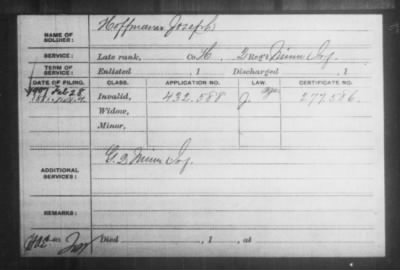 NAME OF SOLDIER: Hoffmann Joseph
SERVICE: Late rank, Co. H, Reg't Minn Inf.
TERM OF SERVICE: Enlisted , 1 Discharged , 1
DATE OF FILING. CLASS. APPLICATION NO. LAW. CERTIFICATE NO.
1907 Feb 28 age
Invalid, 432.588 277.586.
Widow,
Minor,
ADDITIONAL SERVICES: G. 2 Minn Inf.
REMARKS:
Died , 1 , at